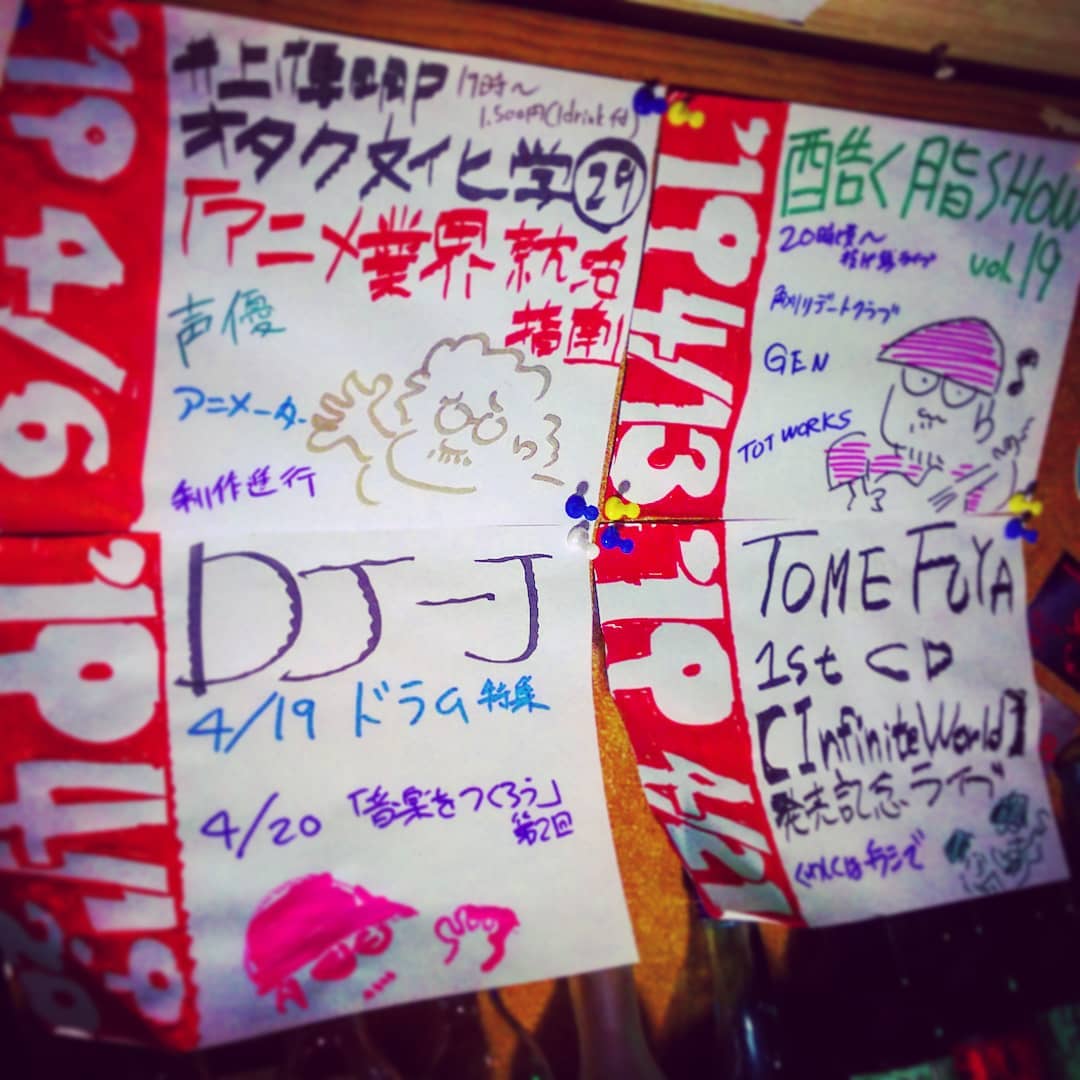 '19 4/6
井上博明P 17時〜
1.500円(1drink付)
オタク文化学 29
アニメ業界 就活
指南
声優
アニメーター
制作進行
'19 4/13
酷く脂SHOW
vol.19
20時度〜
角刈リデートクラブ
GEN
TOT WORKS
'19 4/19
20
DJ-J
4/19 ドラム特集
4/20 「音楽をつくろう」
第2回
'19 4/21
TOME FUYA
1st CD
【InfiniteWorld】
発売記念ライブ
くわしくはチラシで